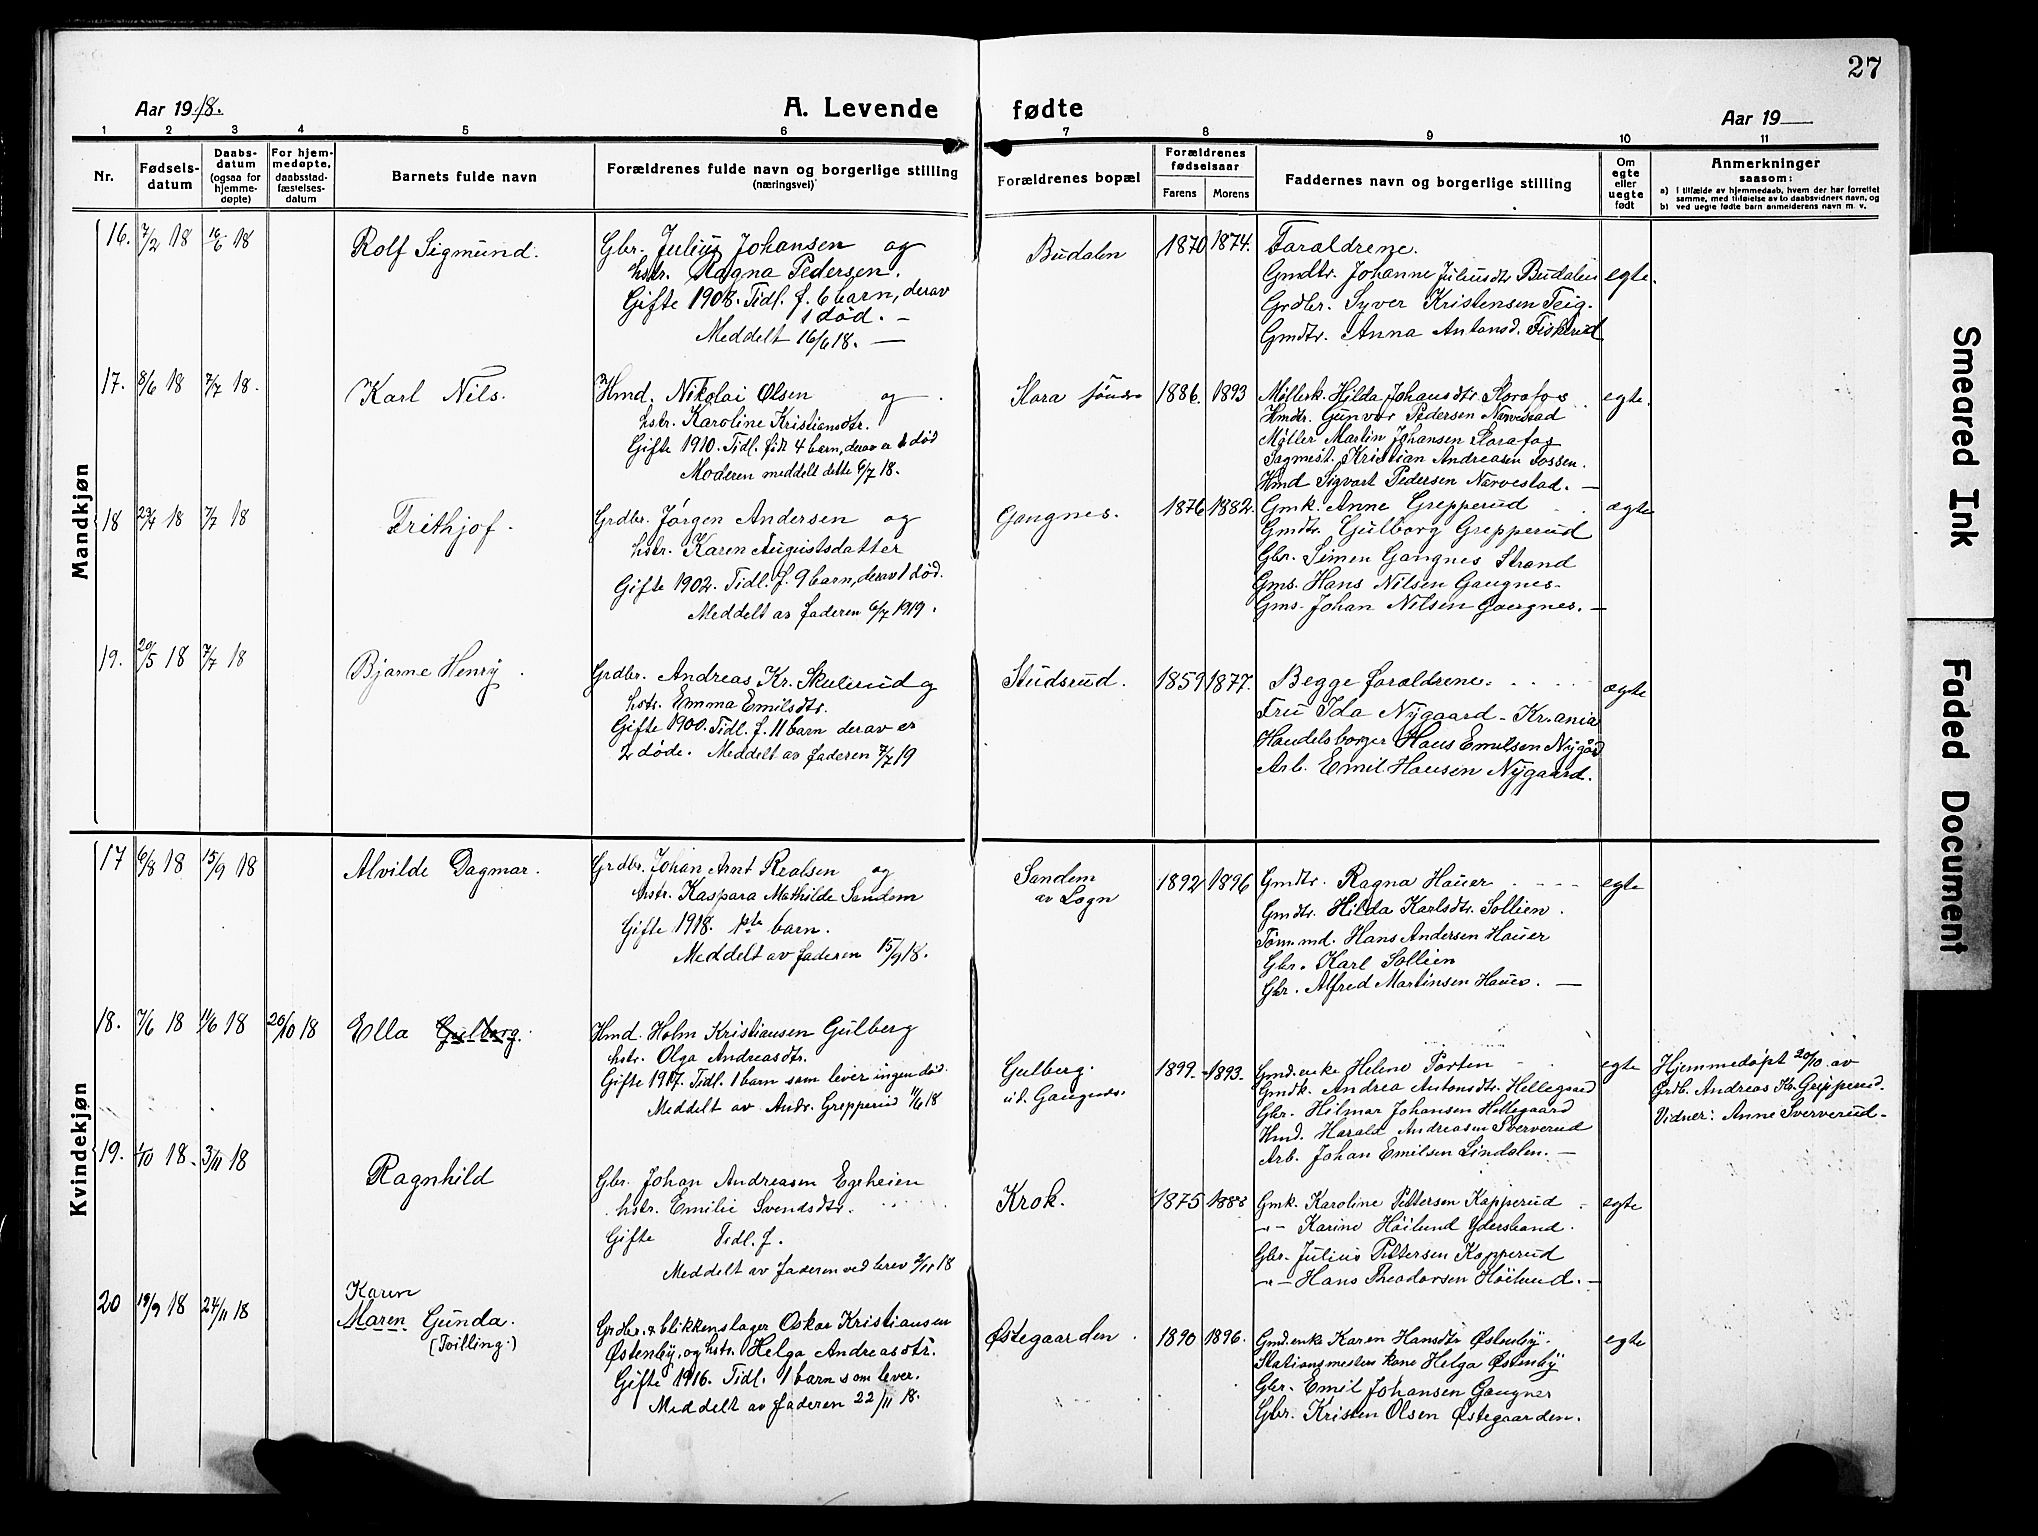 27
Aar 1918.
A. Levende fødte
Aar 19
1 2 3 4 5 6 7 8 9 10 11
Nr.
Fødsels-
datum
Daabs-
datum
(ogsaa for
hjemme-
døpte)
For hjem-
medøpte,
daabsstad-
fæstelses-
datum
Barnets fulde navn
Forældrenes fulde navn og borgerlige stilling
(næringsvei)
Forældrenes bopæl
Forældrenes
fødselsaar
Farens
Morens
Faddernes navn og borgerlige stilling
Om
egte
eller
uegte
født
Anmerkninger
saasom:
a) i tilfælde av hjemmedaab, hvem der har forrettet
samme, med tilføielse av to daabsvidners navn, og
b) ved uegte fødte barn anmelderens navn m. v.
Mandkjøn
16. 7/2 18 16/6 18
Rolf Sigmund.
Gbr. Julius Johansen og
hstr. Ragna Pedersen.
Gifte 1908. Tidl. f. 6 barn, derav
1 død. —
Meddelt 16/6 18. —
Budalen
1870 1874.
Forældrene.
Gmdtr. Johanne Juliusdtr Budalen
Grdbr. Syver Kristensen Teig.
Gmdtr. Anna Antonsd. Fiskerud
egte.
17. 8/6 18 7/7 18.
Karl Nils.
Hmd. Nikolai Olsen og
hstr. Karoline Kristiansdtr.
Gifte 1910. Tidl. født 4 barn, derav er 1 død
Moderen meddelt dette 6/7 18.
Stora søndre
1886. 1893
Møllerk. Hilda Johansdtr Storafos
Hmdtr. Gunvor Pedersen Nærvestad
Møller Martin Johansen Storafos
Sagmest. Kristian Andreasen Fossen.
Hmd Sigvart Pedersen Nærvestad. —
egte.
18 23/4 18 7/7 18
Frithjof.
Grdbr. Jørgen Andersen og
hstr. Karen Augustsdatter
Gifte 1902. Tidl. f. 9 barn, derav 1 død.
Meddelt av faderen 6/7 1919.
Gangnes.
1876 1882.
Gmk. Anne Grepperud
Gmdtr. Gulborg Grepperud
Gbr. Simen Gangnes Strand
Gms. Hans Nilsen Gangnes.
Gms. Johan Nilsen Gangnes. —
ægte
19. 20/5 18 7/7 18
Bjarne Henry.
Grdbr. Andreas Kr. Skulerud og
hstr. Emma Emilsdtr.
Gifte 1900. Tidl. f. 11 barn derav er
2 døde. Meddelt av faderen 7/7 19
Studsrud.
1859 1877.
Begge forældrene.
Fru Ida Nygaard - Kr.ania
Handelsborger Hans Emilsen Nygård
Arb. Emil Hansen Nygaard.
ægte
Kvindekjøn
17 6/8 18 15/9 18
Alvilde Dagmar.
Grdbr. Johan Arnt Realsen og
hstr. Kaspara Mathilde Sandem
Gifte 1918. 1ste barn.
Meddelt av faderen 15/9 18.
Sandem
av Sogn
1892 1896
Gmdtr. Ragna Hauer
Gmdtr. Hilda Karlsdtr. Sollien.
Tømmd. Hans Andersen Hauer
Gbr. Karl Sollien
Gbr. Alfred Martinsen Hauer. —
egte
18. 7/6 18 11/6 18 20/10 18
Ella Gulborg.
Hmd. Holm Kristiansen Gulberg
hstr. Olga Andreasdtr.
Gifte 1917. Tidl. 1 barn som lever ingen død.
Meddelt av Andr. Grepperud 11/6 18
Gulberg.
u.d. Gangnes.
1899. 1893.
Gmd.enke Helene Porten
Gmdk. Andrea Antonsdtr. Hellegaard
Gbr. Hilmar Johansen Hellegaard
Hmd. Harald Andreasen Sververud
Arb. Johan Emilsen Lindalen. —
egte
Hjemmedøpt 20/10 av
Grdb. Andreas Kr. Grepperud.
Vidner: Anne Sververud.
19. 1/10 18. 3/11 18
Ragnhild
Gbr. Johan Andreasen Egeheien
hstr. Emilie Svendsdtr.
Gifte Tidl. f.
Meddelt av faderen ved brev 2/11 18
Krok.
1875 1888
Gmk. Karoline Pettersen Kapperud
—"— Karine Høilund Yderstrand.
Gbr. Julius Pettersen Kapperud
—"— Hans Theodorsen Høilund. —
egte
20 19/9 18 24/11 18
Karen
Maren Gunda.
(Tvilling.)
Grdbr. & blikkenslager Oskar Kristiansen
Østenby, og hstr. Helga Andreasdtr.
Gifte 1916. Tidl. 1 barn som lever.
Meddelt av faderen 22/11 18.
Østegaarden.
1890 1896.
Gmd.enke Karen Hansdtr Østenby.
Stationsmesters kone Helga Østenby
Gbr. Emil Johansen Gangnes
Gbr. Kristen Olsen Østegaarden.
egte
Smeared Ink
Faded Document